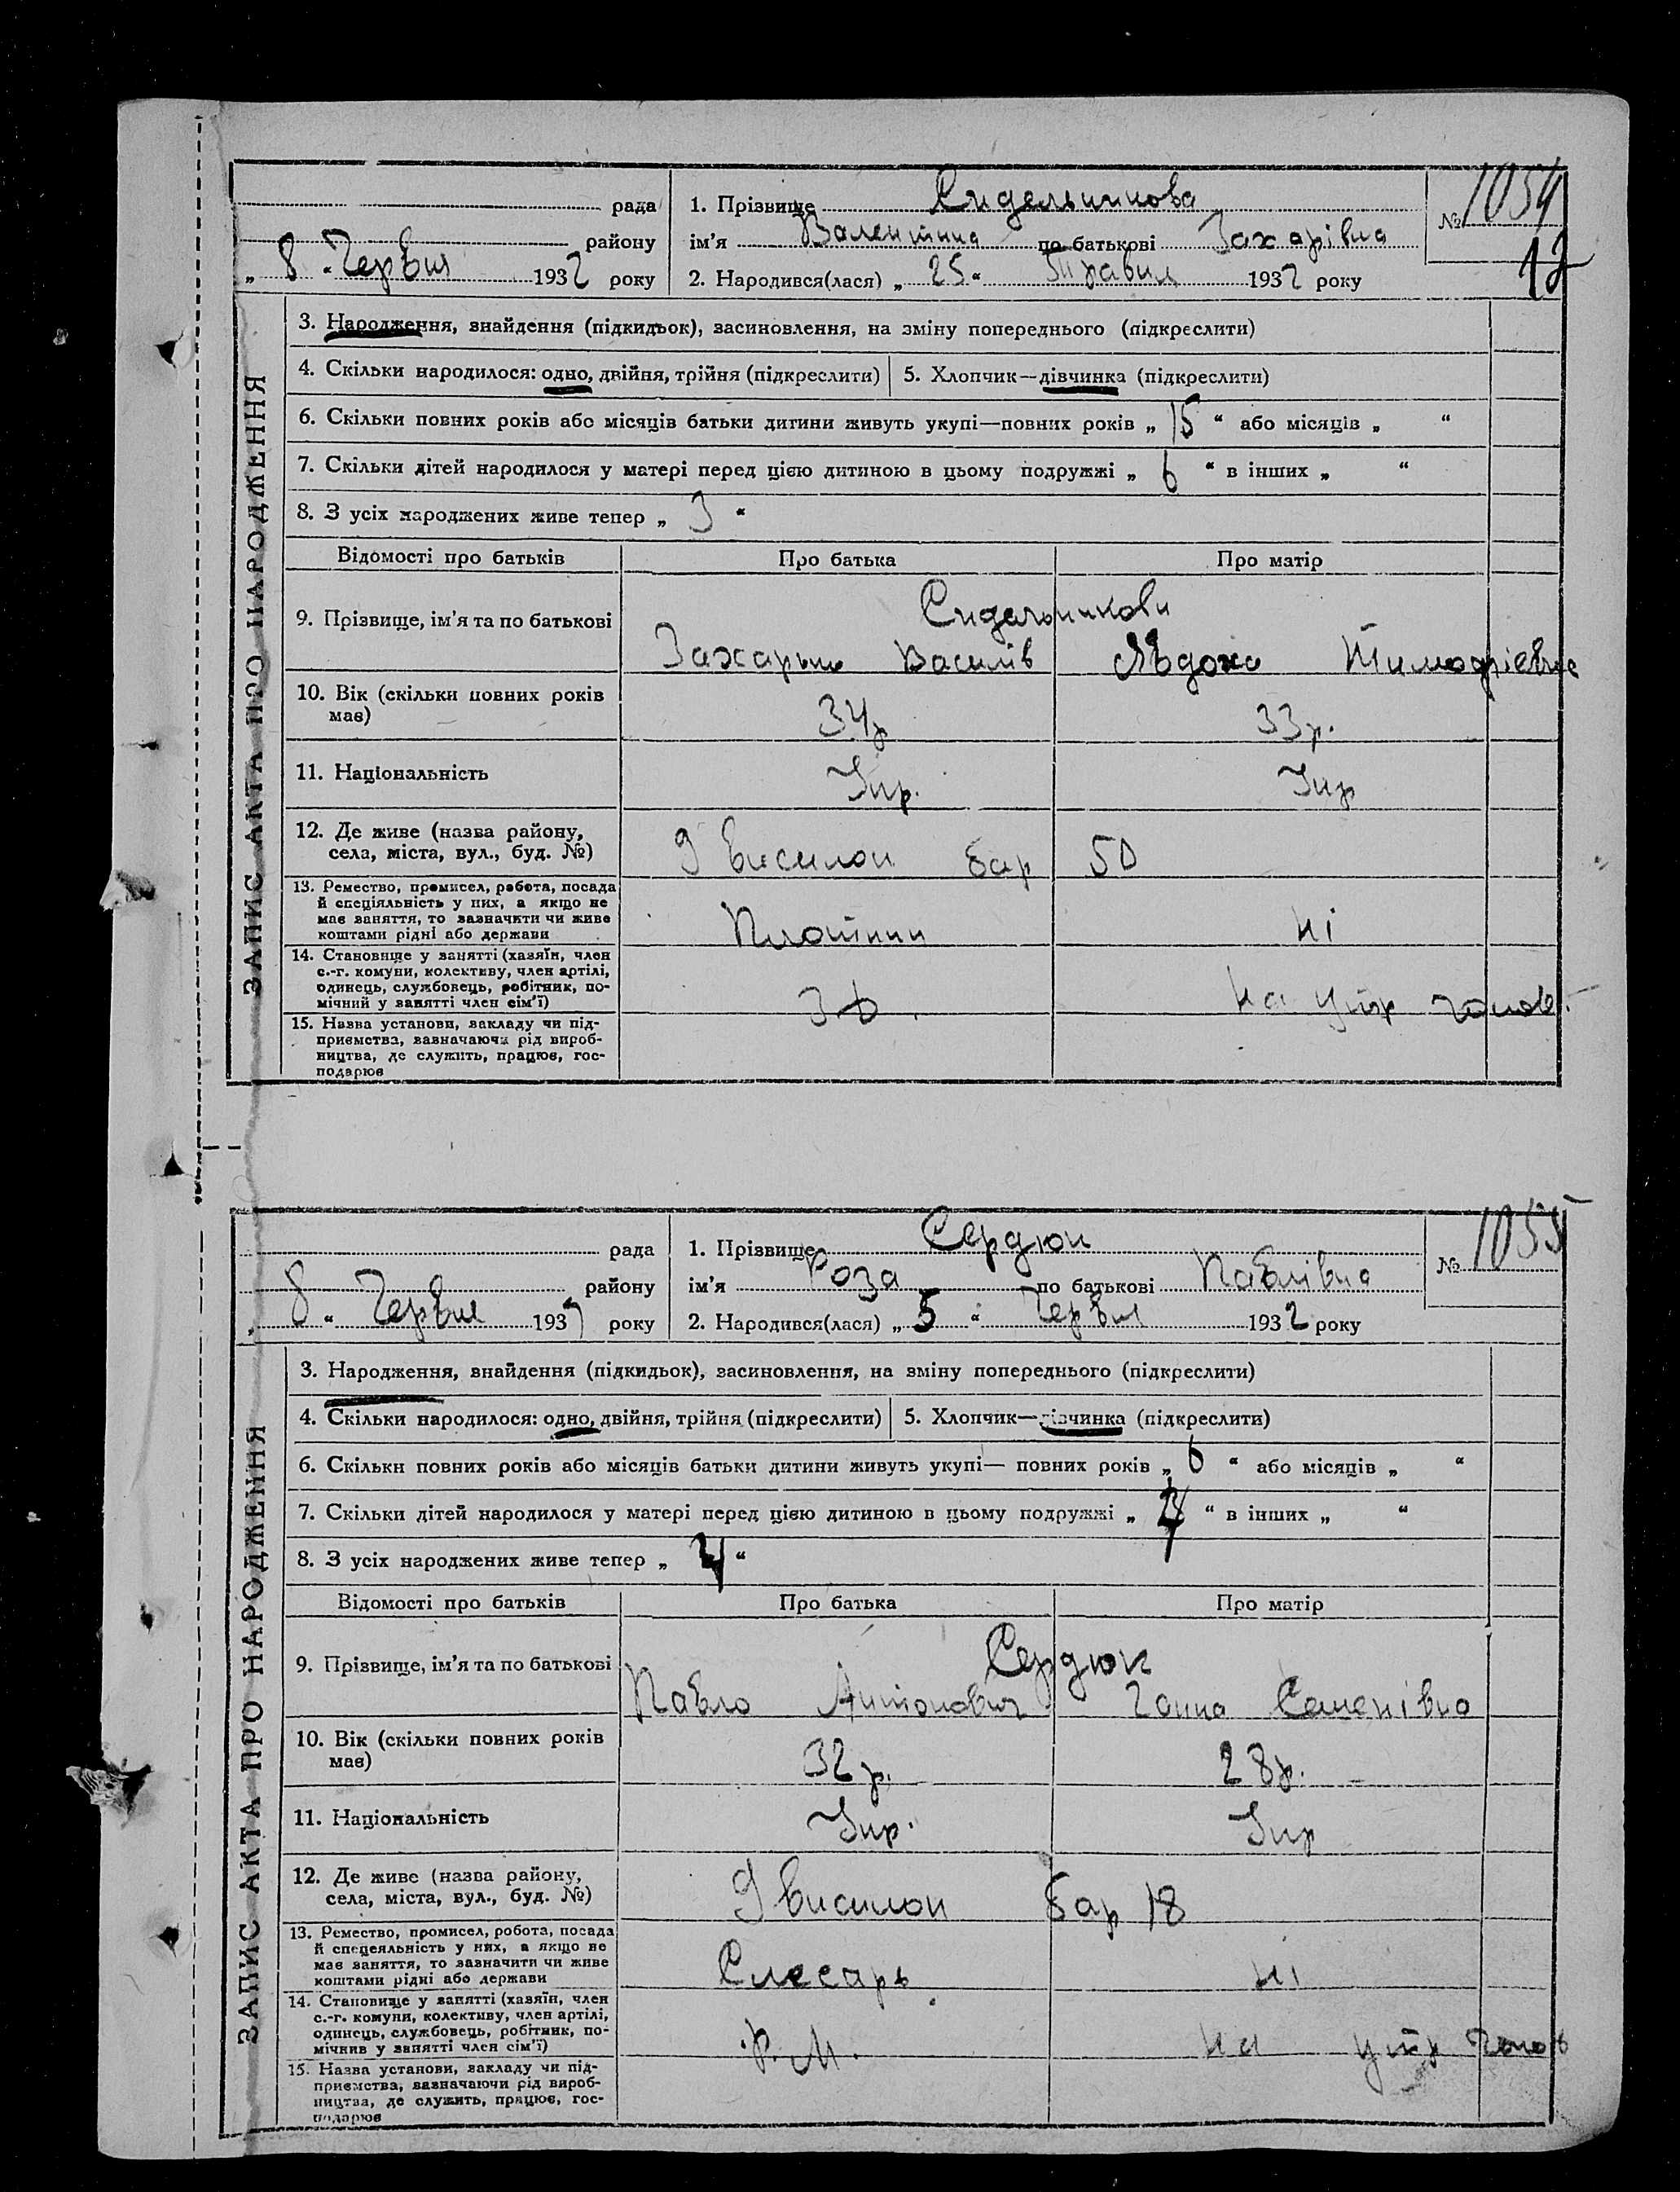 рада
району
„ 8 “ Червня 1932 року
1. Прізвище Сидельникова
ім’я Валентина по батькові Захарівна
2. Народився(лася) „ 25 “ Травня 1932 року
№ 1054
12
ЗАПИС АКТА ПРО НАРОДЖЕННЯ
3. Народження, знайдення (підкидьок), засиновлення, на зміну попереднього (підкреслити)
4. Скільки народилося: одно, двійня, трійня (підкреслити) 5. Хлопчик—дівчинка (підкреслити)
6. Скільки повних років або місяців батьки дитини живуть укупі—повних років „ 15 “ або місяців „ “
7. Скільки дітей народилося у матері перед цією дитиною в цьому подружжі „ 6 “ в інших „ “
8. З усіх народжених живе тепер „ 3 “
Відомості про батьків Про батька Про матір
9. Прізвище, ім’я та по батькові
Сидельникови
Василів Явдоха
10. Вік (скільки повних років
має)
34р 33р.
11. Національність
Укр. Укр
12. Де живе (назва району,
села, міста, вул., буд. №)
9 висилок бар 50
13. Ремество, промисел, робота, посада
й спеціяльність у них, а якщо не
має заняття, то зазначити чи живе
коштами рідні або держави
Плотник ні
14. Становище у занятті (хазяїн, член
с.-г. комуни, колективу, член артілі,
одинець, службовець, робітник, по-
мічний у занятті член сім’ї)
на утр чолов.
15. Назва установи, закладу чи під-
приємства, зазначаючи рід вироб-
ництва, де служить, працює, гос-
подарює
рада
району
„ 8 “ Червня 193 року
1. Прізвище Сердюк
ім’я Роза по батькові Павлівна
2. Народився(лася) „ 5 “ Червня 1932 року
№ 1055
ЗАПИС АКТА ПРО НАРОДЖЕННЯ
3. Народження, знайдення (підкидьок), засиновлення, на зміну попереднього (підкреслити)
4. Скільки народилося: одно, двійня, трійня (підкреслити) 5. Хлопчик—дівчинка (підкреслити)
6. Скільки повних років або місяців батьки дитини живуть укупі— повних років „ 6 “ або місяців „ “
7. Скільки дітей народилося у матері перед цією дитиною в цьому подружжі „ “ в інших „ “
8. З усіх народжених живе тепер „ “
Відомості про батьків Про батька Про матір
9. Прізвище, ім’я та по батькові
Сердюк
Павло Антонович Ганна Семенівна
10. Вік (скільки повних років
має)
32р. 28р.
11. Національність
Укр. Укр
12. Де живе (назва району,
села, міста, вул., буд. №)
9 висилок бар 18
13. Ремество, промисел, робота, посада
й спецеяльність у них, а якщо не
має заняття, то зазначити чи живе
коштами рідні або держави
Слесарь ні
14. Становище у занятті (хазяїн, член
с.-г. комуни, колективу, член артілі,
одинець, службовець, робітник, по-
мічнив у занятті член сім’ї)
Р.М. на утр чолов
15. Назва установи, закладу чи під-
приємства, зазначаючи рід вироб-
ництва, де служить, працює, гос-
подарює